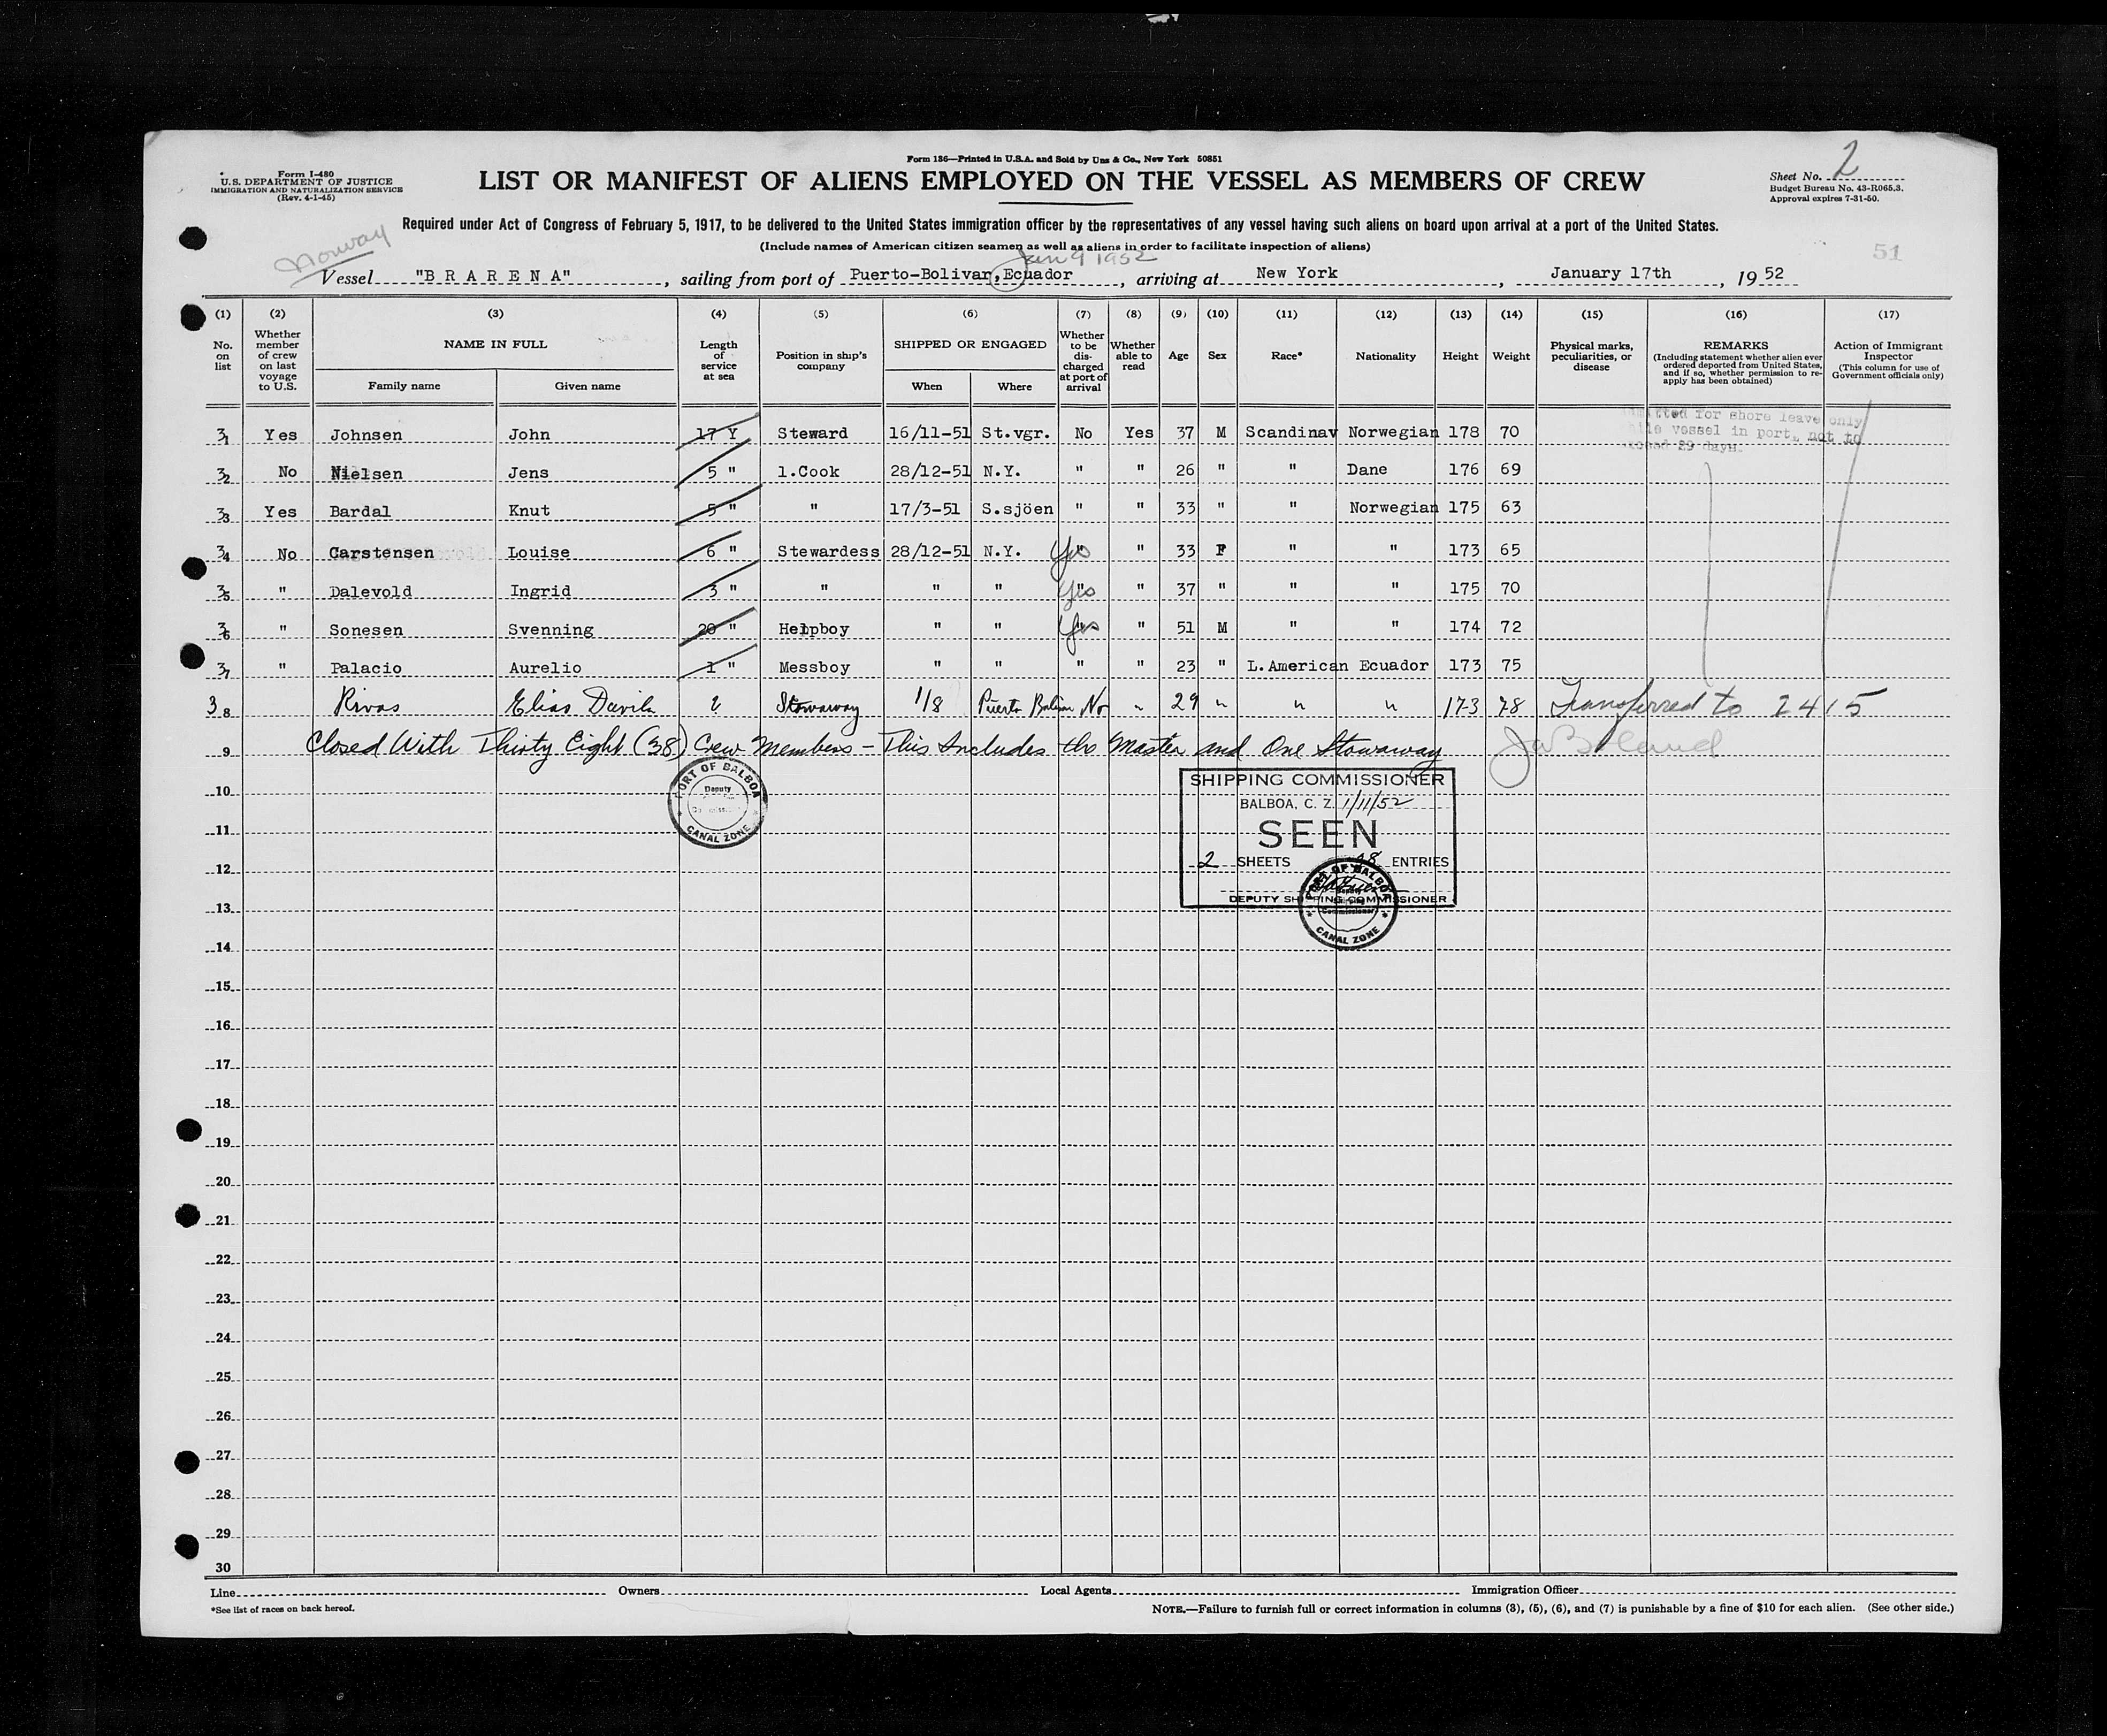 Form 136—Printed in U.S.A. and Sold by Unz & Co., New York 50851
Form I-480
U.S. DEPARTMENT OF JUSTICE
IMMIGRATION AND NATURALIZATION SERVICE
(Rev. 4-1-45)
LIST OR MANIFEST OF ALIENS EMPLOYED ON THE VESSEL AS MEMBERS OF CREW
Sheet No. 2
Budget Bureau No. 43-R065.3.
Approval expires 7-31-50.
Required under Act of Congress of February 5, 1917, to be delivered to the United States immigration officer by the representatives of any vessel having such aliens on board upon arrival at a port of the United States.
(Include names of American citizen seamen as well as aliens in order to facilitate inspection of aliens)
Norway
Jan 9 1952
51
Vessel "B R A R E N A", sailing from port of Puerto-Bolivar, Ecuador, arriving at New York, January 17th, 19 52
(1) (2) (3) (4) (5) (6) (7) (8) (9) (10) (11) (12) (13) (14) (15) (16) (17)
No. on list
Whether member of crew on last voyage to U.S.
NAME IN FULL
Family name
Given name
Length of service at sea
Position in ship's company
SHIPPED OR ENGAGED
When
Where
Whether to be discharged at port of arrival
Whether able to read
Age
Sex
Race*
Nationality
Height
Weight
Physical marks, peculiarities, or disease
REMARKS
(Including statement whether alien ever ordered deported from United States, and if so, whether permission to reapply has been obtained)
Action of Immigrant Inspector
(This column for use of Government officials only)
mitted for shore leave only
ile vessel in port, not to
ceed 29 days.
31 Yes Johnsen John 17 Y Steward 16/11-51 St.vgr. No Yes 37 M Scandinav Norwegian 178 70
32 No Nielsen Jens 5 " 1.Cook 28/12-51 N.Y. " " 26 " " Dane 176 69
33 Yes Bardal Knut 5 " " 17/3-51 S.sjöen " " 33 " " Norwegian 175 63
34 No Carstensen Louise 6 " Stewardess 28/12-51 N.Y. Yes " 33 F " " 173 65
35 " Dalevold Ingrid 3 " " " " Yes " 37 " " " 175 70
36 " Sonesen Svenning 20 " Helpboy " " Yes " 51 M " " 174 72
37 " Palacio Aurelio 1 " Messboy " " " " 23 " L.American Ecuador 173 75
38 Rivas Elias Davila ? Stowaway 1/8 Puerto Bolivar No " 29 " " " 173 78 Transferred to 2415
9 Closed With Thirty Eight (38) Crew Members – This Includes the Master and One Stowaway
10
11
12
13
14
15
16
17
18
19
20
21
22
23
24
25
26
27
28
29
30
PORT OF BALBOA
Deputy
CANAL ZONE
SHIPPING COMMISSIONER
BALBOA, C. Z. 1/11/52
SEEN
2 SHEETS 38 ENTRIES
DEPUTY SHIPPING COMMISSIONER
PORT OF BALBOA
Deputy
Shipping
Commissioner
CANAL ZONE
Line Owners Local Agents Immigration Officer
*See list of races on back hereof.
NOTE.—Failure to furnish full or correct information in columns (3), (5), (6), and (7) is punishable by a fine of $10 for each alien. (See other side.)